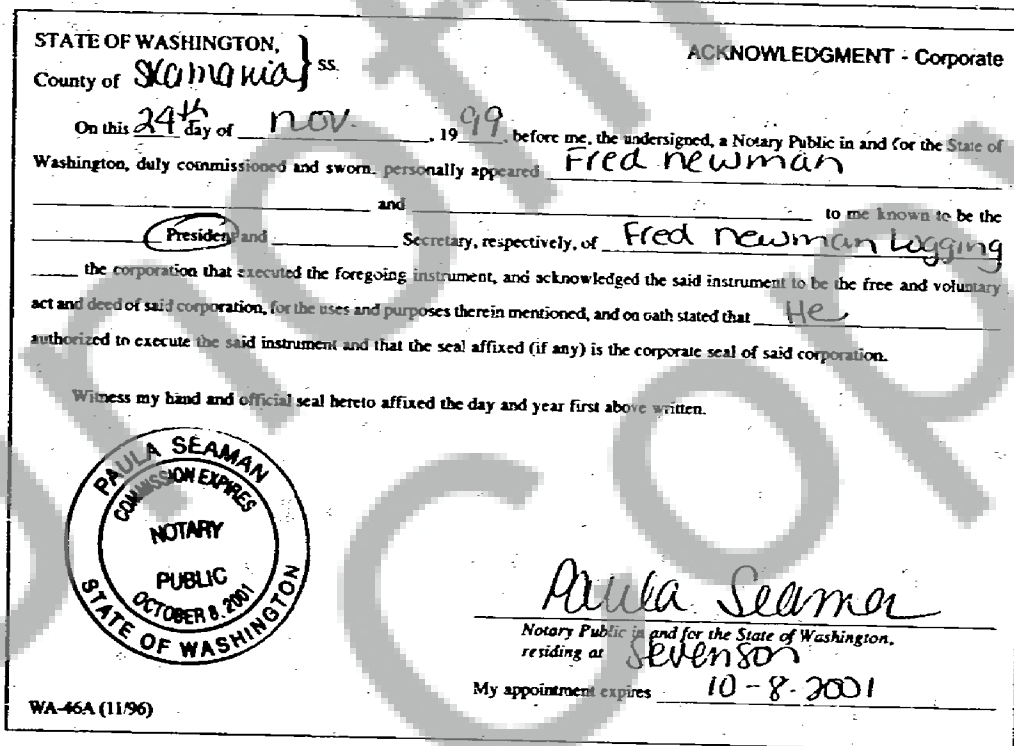 STATE OF WASHINGTON,
County of Skamania } ss.
ACKNOWLEDGMENT - Corporate
On this 24th day of nov. , 19 99, before me, the undersigned, a Notary Public in and for the State of
Washington, duly commissioned and sworn, personally appeared Fred newman
and to me known to be the
President and Secretary, respectively, of Fred newman Logging
the corporation that executed the foregoing instrument, and acknowledged the said instrument to be the free and voluntary
act and deed of said corporation, for the uses and purposes therein mentioned, and on oath stated that He
authorized to execute the said instrument and that the seal affixed (if any) is the corporate seal of said corporation.
Witness my hand and official seal hereto affixed the day and year first above written.
PAULA SEAMAN
COMMISSION EXPIRES
NOTARY
PUBLIC
OCTOBER 8, 2001
STATE OF WASHINGTON
Paula Seaman
Notary Public in and for the State of Washington,
residing at Sevenson
My appointment expires 10-8-2001
WA-46A (11/96)